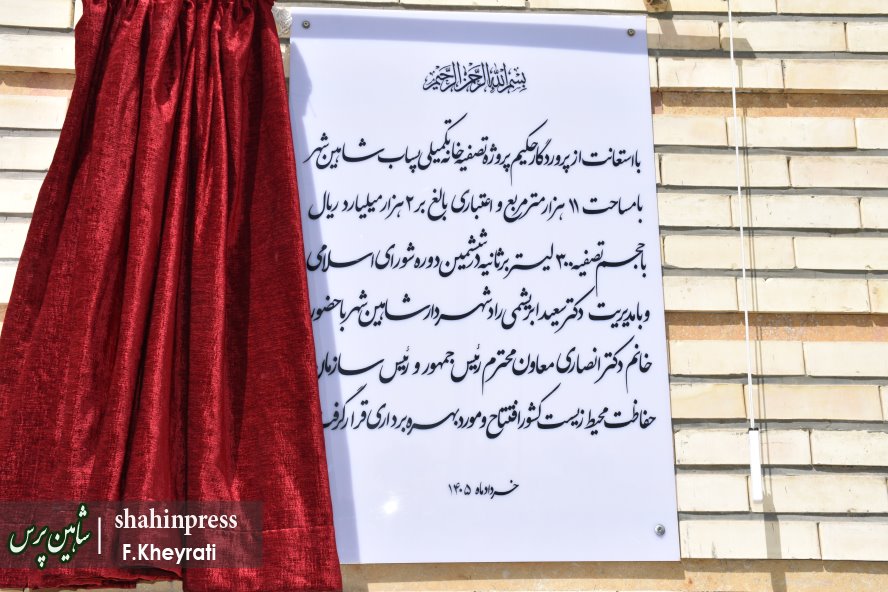 بسم الله الرحمن الرحیم
با استعانت از پروردگار حکیم پروژه تصفیه خانه تکمیلی پساب شاهین شهر
با مساحت ۱۱ هزار متر مربع و اعتباری بالغ بر ۲ هزار میلیارد ریال
با حجم تصفیه ۳۰۰ لیتر بر ثانیه در ششمین دوره شورای اسلامی
و با مدیریت دکتر سعید ابریشمی راد شهردار شاهین شهر با حضور
خانم دکتر انصاری معاون محترم رئیس جمهور و رئیس سازمان
حفاظت محیط زیست کشور افتتاح و مورد بهره برداری قرار گرفت
خرداد ماه ۱۴۰۵
شاهین پرس | shahinpress
F.Kheyrati